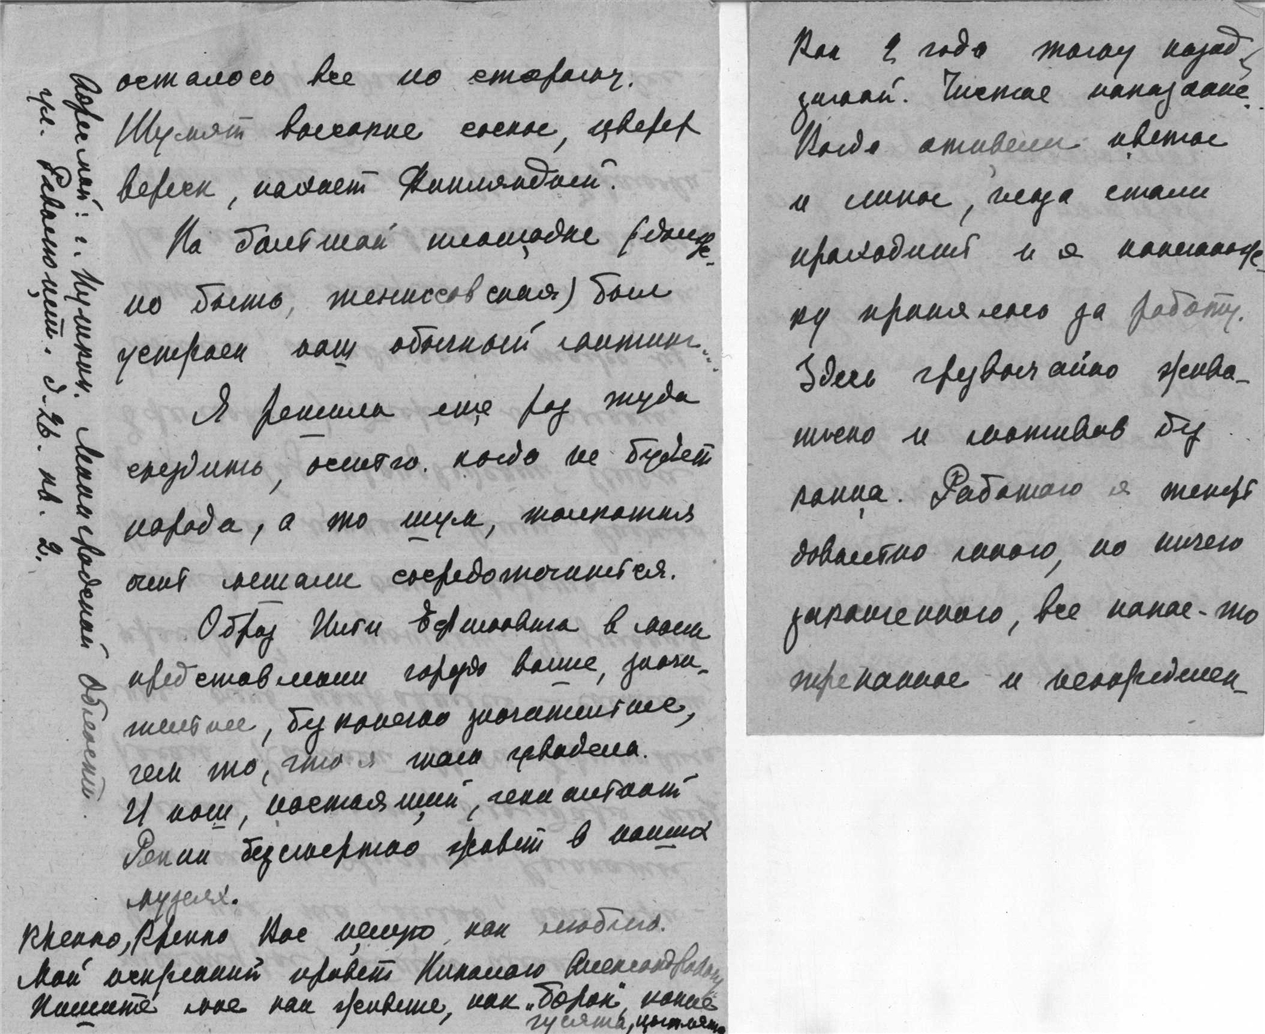 осталось все по старому.
Шумят высокие сосны, цветет
вереск, пахнет Финляндией.
На большой площадке (долж-
но быть, теннисовская) был
устроен наш обычный митинг...
Я решила еще раз туда
съездить, осенью. когда не будет
народа, а то шум, толкотня
очень мешали сосредоточится.
Образ Ильи Ефимовича в моем
представлении гораздо выше, значи-
тельнее, бесконечно значительнее,
чем то, что я там увидела.
И наш, настоящий, гениальный
Репин бессмертно живет в наших
музеях.
Крепко, крепко Вас целую, как люблю.
Мой искренний привет Николаю Александровичу
Пишите мне как живете, как „Борок“, какие
гусята, цыплята
Адрес мой: г. Пушкин. Ленинградской области.
ул. Революции. д-26. кв. 2.
Как 2 года тому назад
зимой. Чистое наказание.
Когда отцвели цветы
и липы, чезд стали
проходить и я понемнож-
ку принялась за работу.
Здесь чрезвычайно живо-
писно и мотивов без
конца. Работаю я теперь
довольно много, но ничего
законченного, все какое-то
трепанное и неопределен-